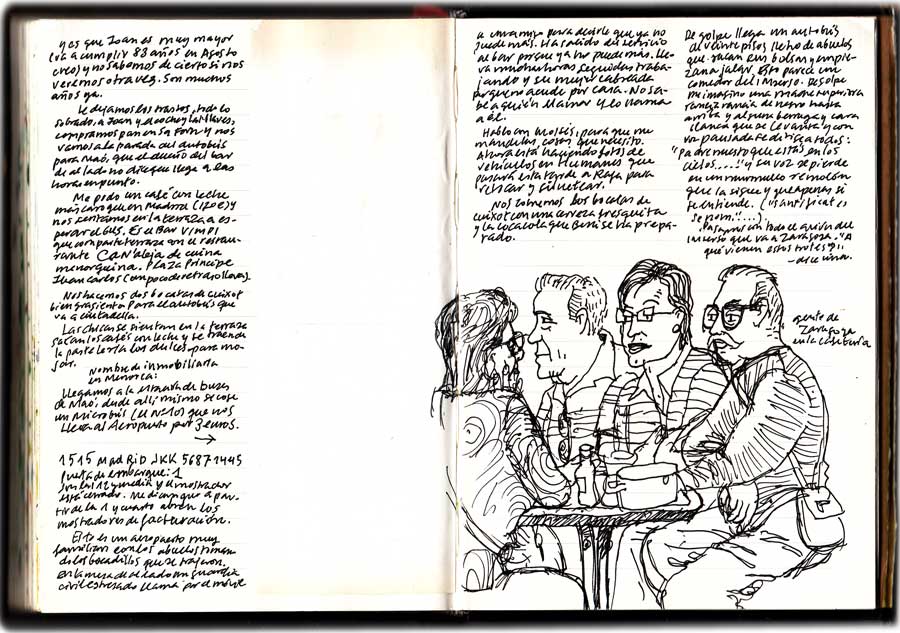 y es que Joan es muy mayor
(va a cumplir 88 años en Agosto
creo) y no sabemos de cierto si nos
veremos otra vez. Son muchos
años ya.
Le dejamos los trastos, todo lo
sobrado, a Joan y el coche y las llaves,
compramos pan en sa Forn y nos
vamos a la parada del autobús
para Maó, que el dueño del bar
de al lado me dice que llega a las
horas en punto.
Me pido un café con leche
más caro que en Madrid (1,70€) y
nos sentamos en la terraza a es-
perar el bus. Es el Bar VIMPI
que comparte terraza con el restau-
rante CAN'aleja de cuina
menorquina. PLAZA Príncipe
Juan Carlos (un poco de retraso lleva).
Nos hacemos dos bocatas de cuixot
bien grasiento para el autobús que
va a ciutadella.
Las chicas se sientan en la terraza
sacan los cafés con leche y se traen de
la pastelería los dulces para mo-
jar.
Nombre de inmobiliaria
en Menorca:
Llegamos a la estación de buses
de Maó, desde allí mismo se coge
un Microbús (el Nº10) que nos
lleva al Aeropuerto por 3 euros.
→
1515 MadRiD JKK 56871445
puerta de embarque: 1
Son las 12 y media y el mostrador
está cerrado. Me dicen que a par-
tir de la 1 y cuarto abren los
mostradores de facturación.
Esto es un aeropuerto muy
familiar con los abuelos comien-
do los bocadillos que se trajeron.
En la mesa de al lado un guardia
civil estresado llama por el móvil
a un amigo para decirle que ya no
puede más. Ha salido del servicio
al bar porque ya no puede más. Lle-
va muchas horas seguidas traba-
jando y su mujer cabreada
porque no acude por casa. No sa-
be a quién llamar y lo llama
a él.
Hablo con Moisés, para que me
mande las cosas que necesito.
Ahora está haciendo fotos de
vehículos en Humanes que
pasará esta tarde a Rafa para
retocar y siluetear.
Nos comemos los bocatas de
cuixot con una cerveza fresquita
y la cocacola que Beni se ha prepa-
rado.
De golpe llega un autobús
de veinte pisos lleno de abuelos
que sacan sus bolsas y empie-
zan a jalar. Esto parece un
comedor del Imserso. De golpe
me imagino una madre superiora
rancia de negro hasta
arriba y alguna berruga y cara
blanca que se levanta y con
voz pausada se dirige a todos:
"Padre nuestro que estás en los
cielos...." y su voz se pierde
en un murmullo remolón
que la sigue y que apenas si
se entiende. ("santificat
se nom."...)
Pasamos con todo el avión del
imserso que va a Zaragoza. "A
qué vienen estos trotes?"
—dice una.
gente de
Zaragoza
en la cafetería